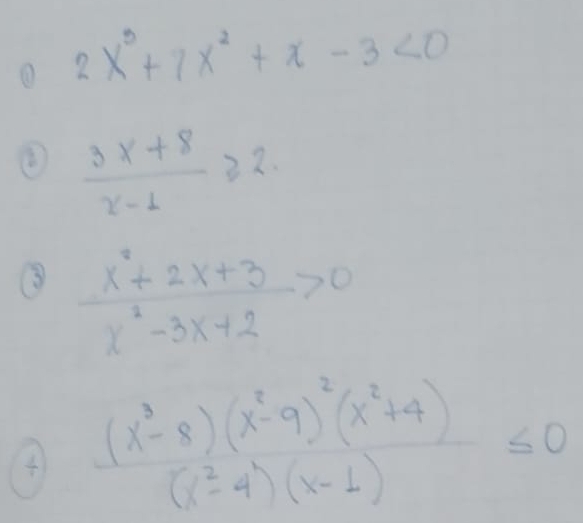 ① 2x³ + 7x² + x - 3 < 0
② (3x + 8)/(x - 1) ≥ 2.
③ (x² + 2x + 3)/(x² - 3x + 2) > 0
④ (x³ - 8)(x² - 9)²(x² + 4)/((x² - 4)(x - 1)) ≤ 0